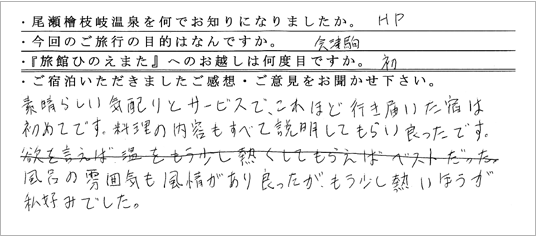 ・尾瀬檜枝岐温泉を何でお知りになりましたか。 HP
・今回のご旅行の目的はなんですか。 会津駒
・『旅館ひのえまた』へのお越しは何度目ですか。 初
・ご宿泊いただきましたご感想・ご意見をお聞かせ下さい。
素晴らしい気配りとサービスで、これほど行き届いた宿は
初めてです。料理の内容もすべて説明してもらい良ったです。
欲を言えば 温をもう少し熱くしてもらえば ベストだった。
風呂の雰囲気も風情があり良ったが、もう少し熱いほうが
私好みでした。